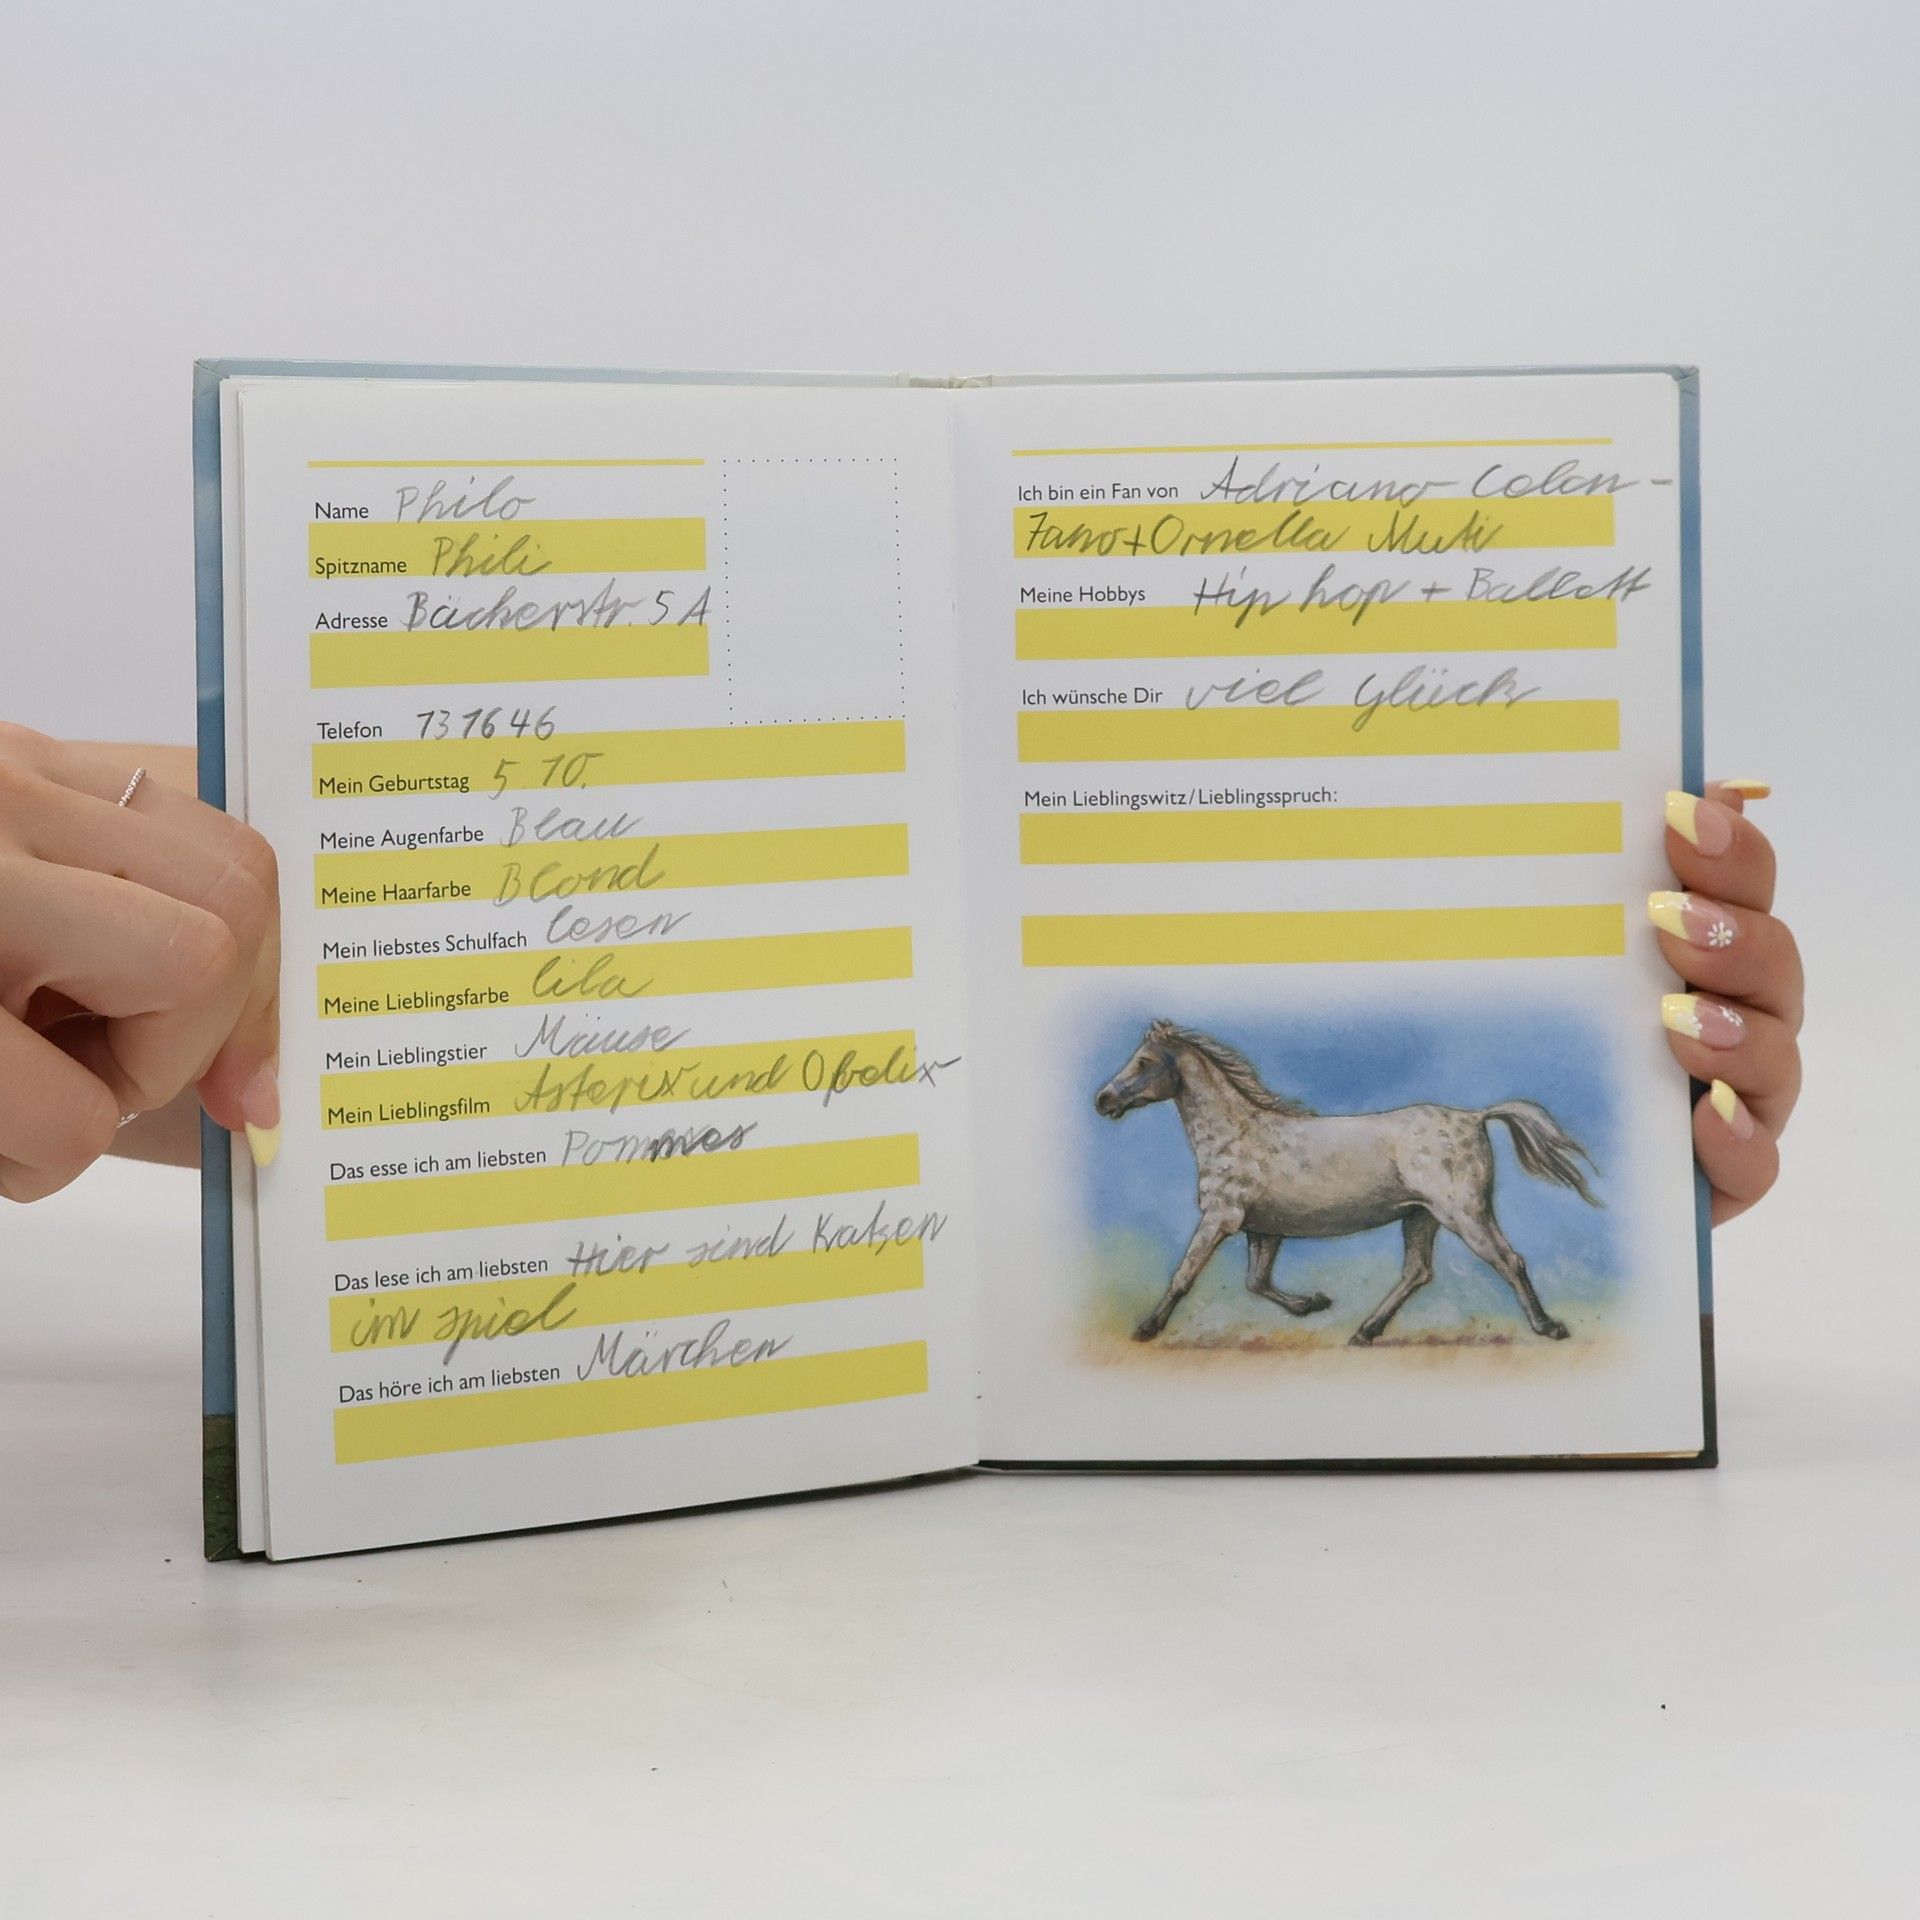 Name Philo
Spitzname Phili
Adresse Bächerstr. 5 A
Telefon 131646
Mein Geburtstag 5. 10.
Meine Augenfarbe Blau
Meine Haarfarbe Blond
Mein liebstes Schulfach lesen
Meine Lieblingsfarbe lila
Mein Lieblingstier Mäuse
Mein Lieblingsfilm Asterix und Obelix
Das esse ich am liebsten Pommes
Das lese ich am liebsten Hier sind Katzen
im spiel
Das höre ich am liebsten Märchen
Ich bin ein Fan von Adriano Colon-
Tano+Ornella Muti
Meine Hobbys Hip hop + Ballett
Ich wünsche Dir viel Glück
Mein Lieblingswitz/Lieblingsspruch: